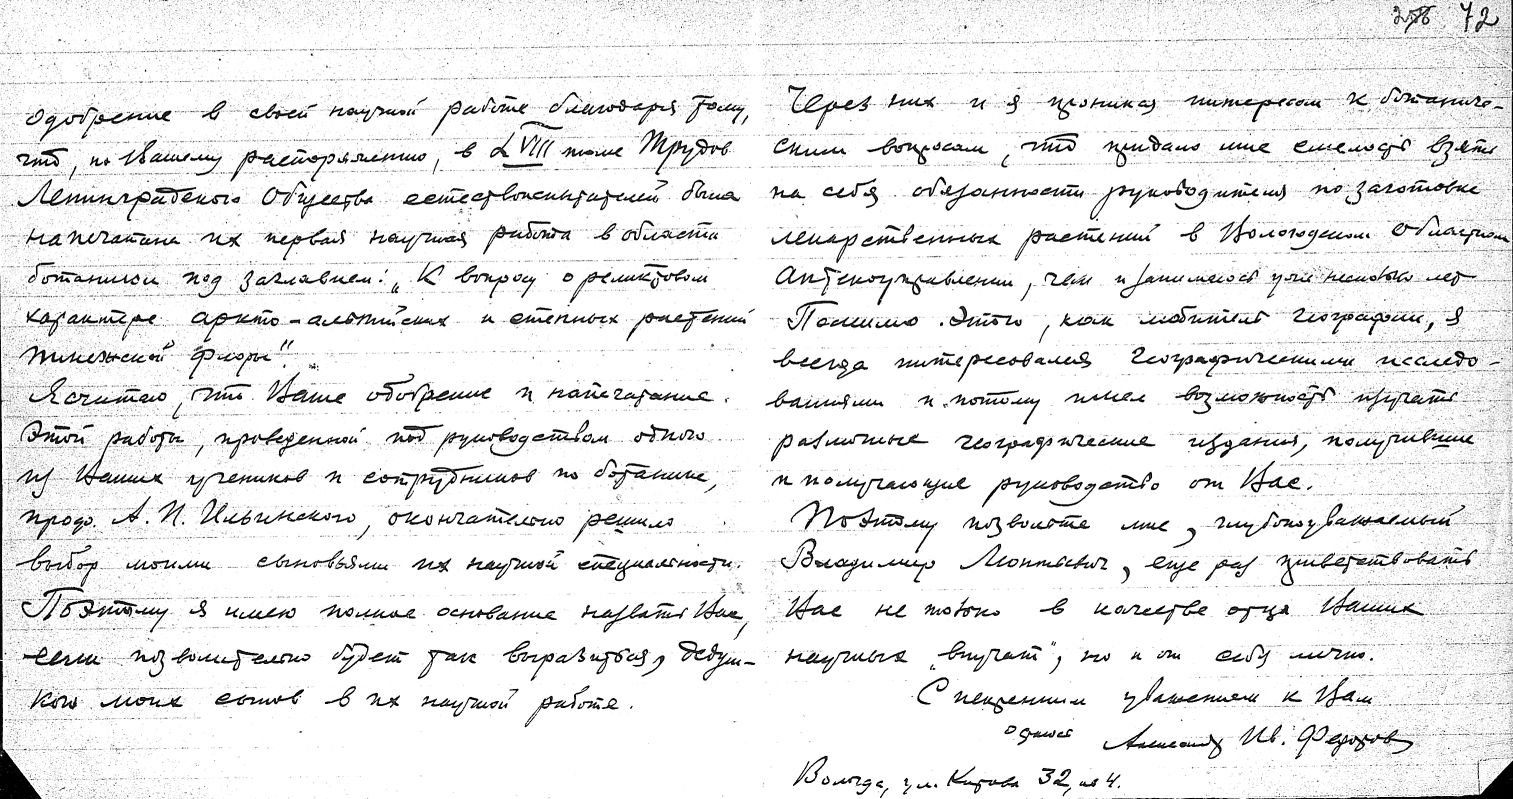 72
одобрение в своей научной работе благодаря тому,
что, по Вашему распоряжению, в LVIII томе Трудов
Ленинградского Общества естествоиспытателей была
напечатана их первая научная работа в области
ботаники под заглавием: „К вопросу о реликтовом
характере аркто-альпийских и степных растений
Пинежской флоры".
Я считаю, что Ваше одобрение и напечатание
этой работы, проведенной под руководством одного
из Ваших учеников и сотрудников по ботанике,
проф. А. П. Ильинского, окончательно решило
выбор моими сыновьями их научной специальности.
Поэтому я имею полное основание назвать Вас,
если позволительно будет так выразиться, дедуш-
кой моих сынов в их научной работе.
Через них и я проникся интересом к ботаниче-
ским вопросам, что придало мне смелость взять
на себя обязанности руководителя по заготовке
лекарственных растений в Вологодском областном
Аптекоуправлении, чем и занимаюсь уже несколько лет
Помимо этого, как любитель географии, я
всегда интересовался географическими исследо-
ваниями и потому имел возможность изучать
различные географические издания, получившие
и получающие руководство от Вас.
Поэтому позвольте мне, глубокоуважаемый
Владимир Леонтьевич, еще раз приветствовать
Вас не только в качестве отца Ваших
научных „внучат", но и от себя лично.
С искренним уважением к Вам
Александр Ив. Федоров
Вологда, ул. Кирова 32, кв 4.